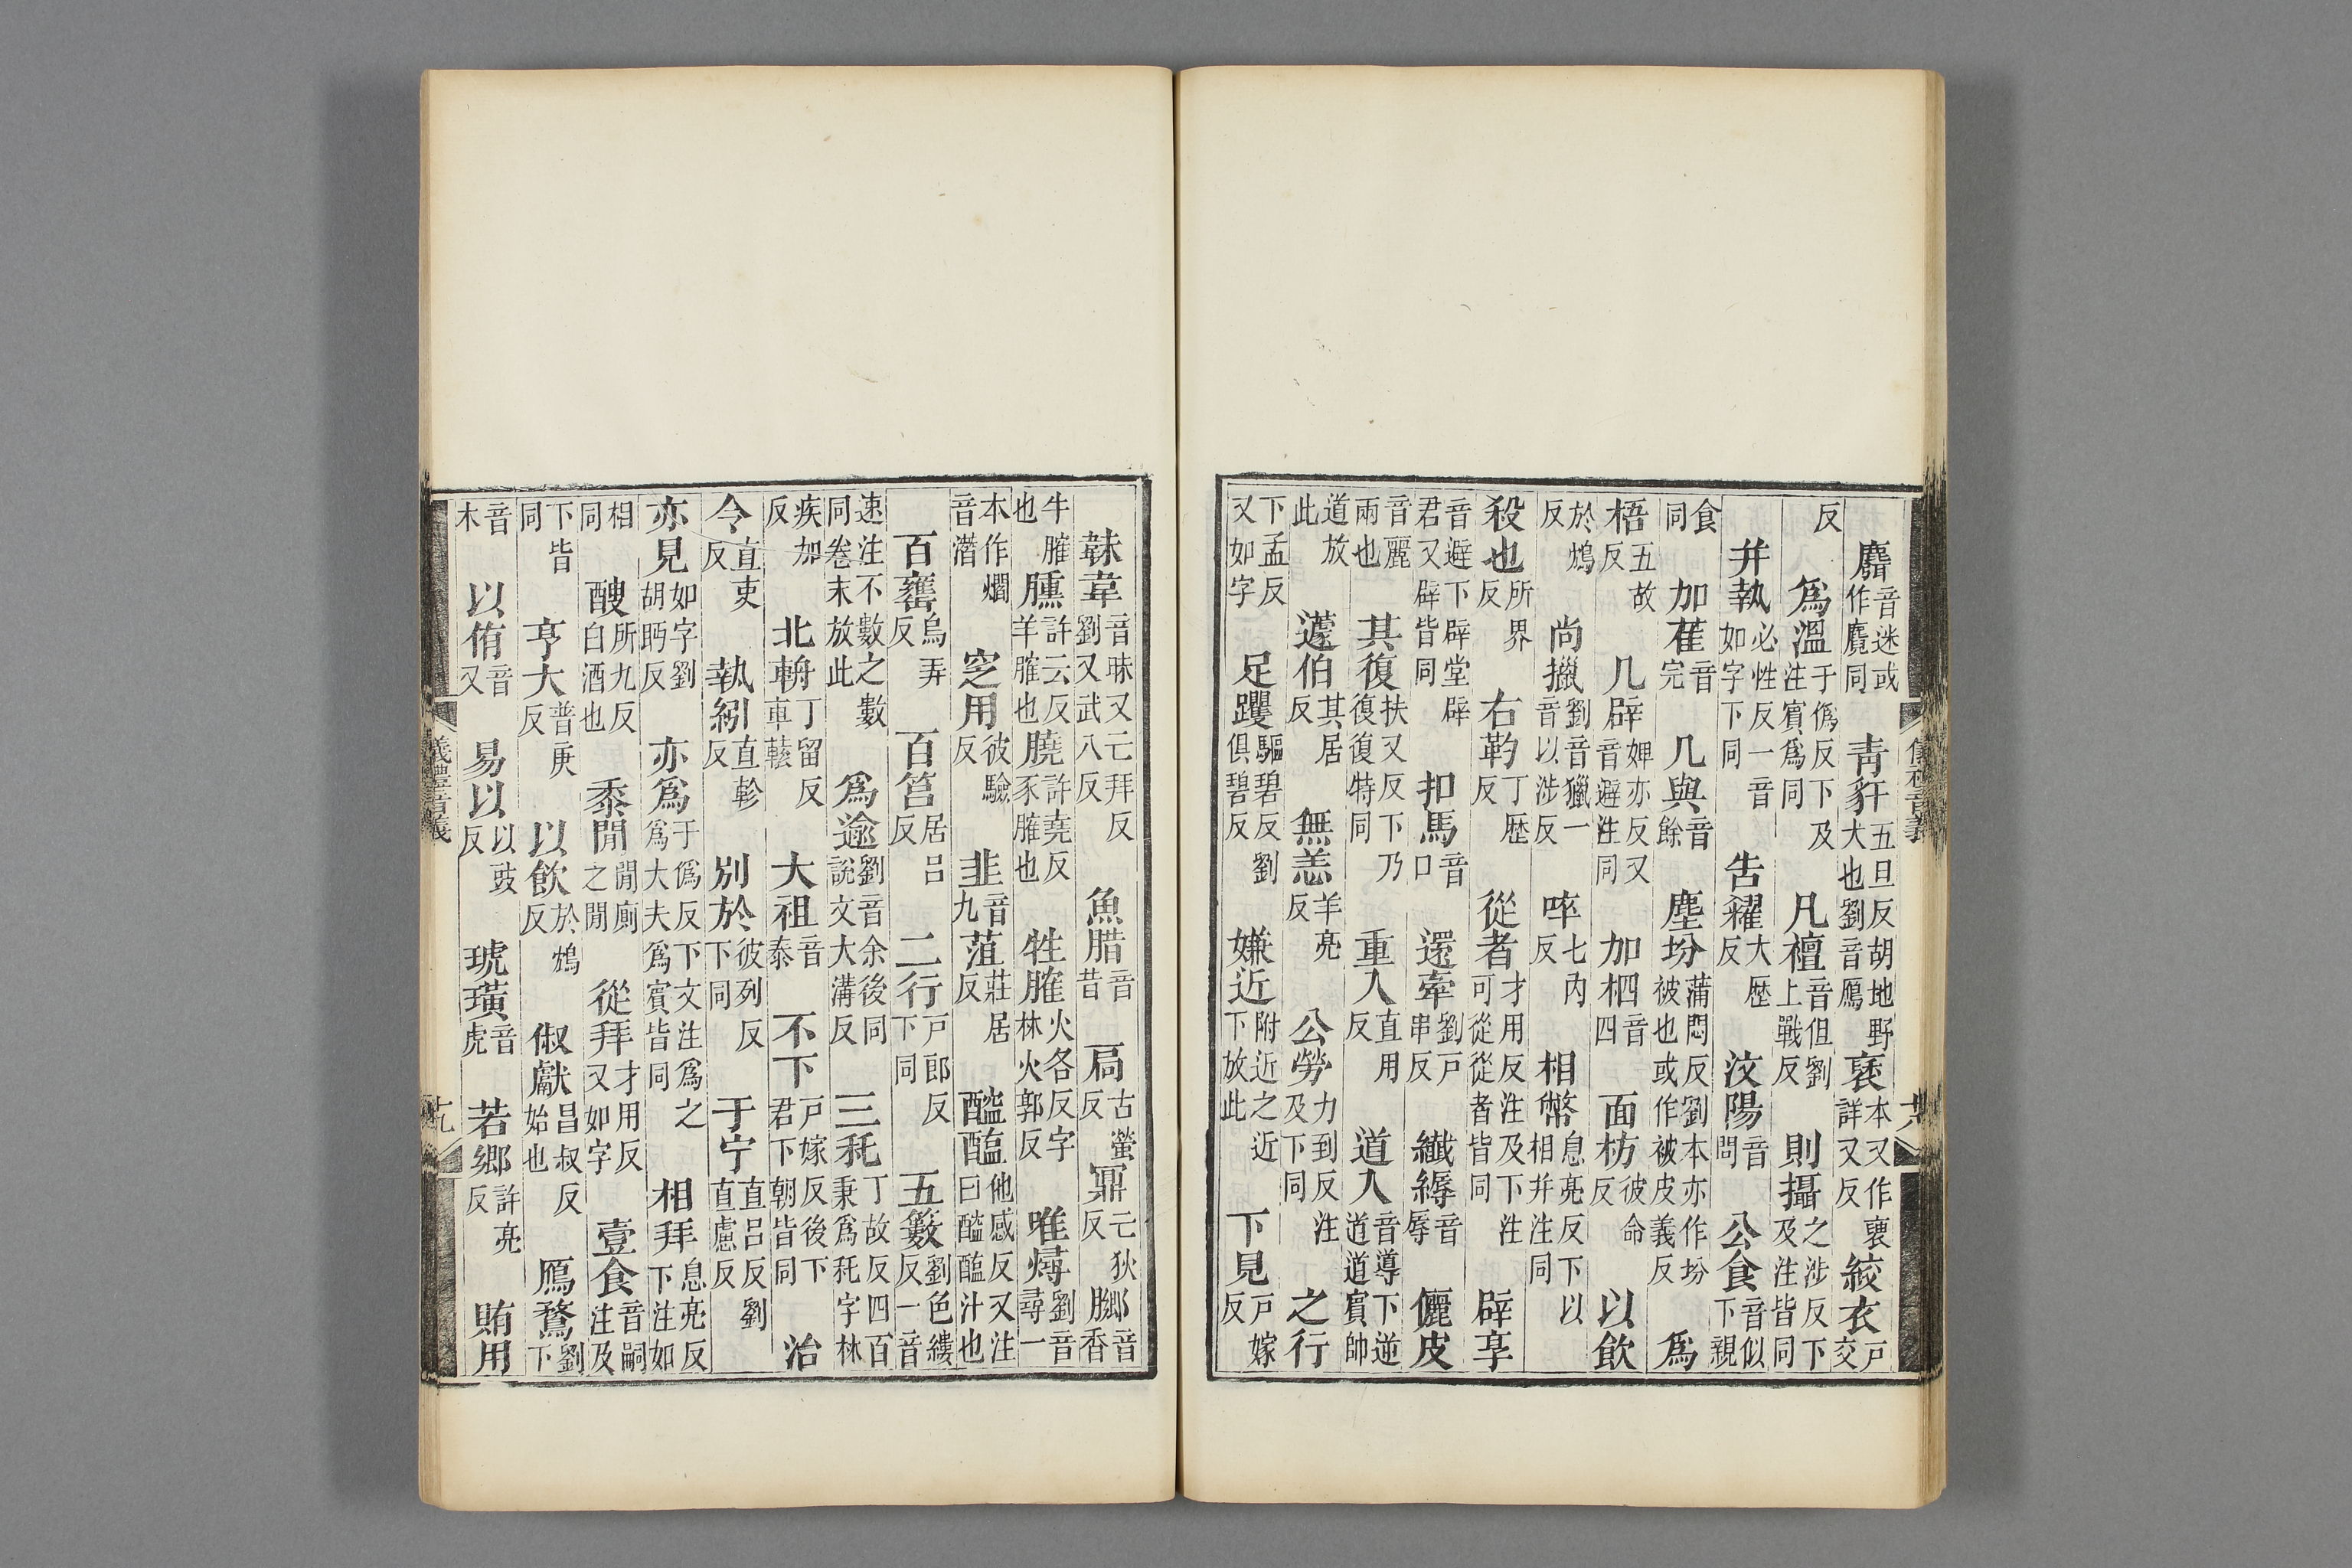 麛音迷或作麑同　青豻五旦反胡地野犬也劉音鴈　褎本又作裦詳又反　絞衣戶交
反　爲溫于僞反下及注賓爲同　凡襢音但劉上戰反　則攝之涉反下及注皆同
并執必性反一音如字下同　告糴大歷反　汶陽音問　公食音似下親
食同　加萑音完　几與音餘　塵坋蒲悶反劉本亦作坋被也或作被皮義反　爲
梧五故反　几辟婢亦反又音避注同　加柶音四　面枋彼命反　以飲
於鴆反　尚擸劉音獵一音以涉反　啐七內反　相幣息亮反下以相幷注同
殺也所界反　右靮丁歷反　從者才用反注及下注可從從者皆同　辟享
音避下辟堂辟君又辟皆同　扣馬音口　還牽劉戶串反　纖縟音辱　儷皮
音麗兩也　其復扶又反下乃復復特同　重入直用反　道入音導下逆道道賓帥
道放此　蘧伯其居反　無恙羊亮反　公勞力到反注及下同　之行
下孟反又如字　足躩驅碧反劉俱碧反　嫌近附近之近下放此　下見戶嫁反
儀禮音義
韎韋音昧又亡拜反劉又武八反　魚腊音昔　扃古螢反　鼏亡狄反　膷音香
牛臛也　臐許云反羊臛也　膮許堯反豕臛也　牲臛火各反字林火郭反　唯燖劉音尋一
本作爓音潛　窆用彼驗反　韭音九　菹莊居反　醓醢他感反又注曰醓醢汁也
百罋烏弄反　百筥居呂反　二行戶郎反下同　五籔劉色縷反一音
速注不數之數同卷末放此　爲逾劉音余後同說文大溝反　三秅丁故反四百秉爲秅字林
疾加反　北輈丁留反車轅　大祖音泰　不下戶嫁反後下君下朝皆同　治
令直吏反　執紖直軫反　別於彼列反下同　于宁直呂反劉直慮反
亦見如字劉胡眄反　亦爲于僞反下文注爲之爲大夫爲賓皆同　相拜息亮反下注如
相同　醙所九反白酒也　黍閒閒廁之閒　從拜才用反又如字　壹食音嗣注及
下皆同　亨大普庚反　以飲於鴆反　俶獻昌叔反始也　鴈鶩劉下
音木　以侑音又　易以以豉反　琥璜音虎　若鄉許亮反　賄用
儀禮音義　十九